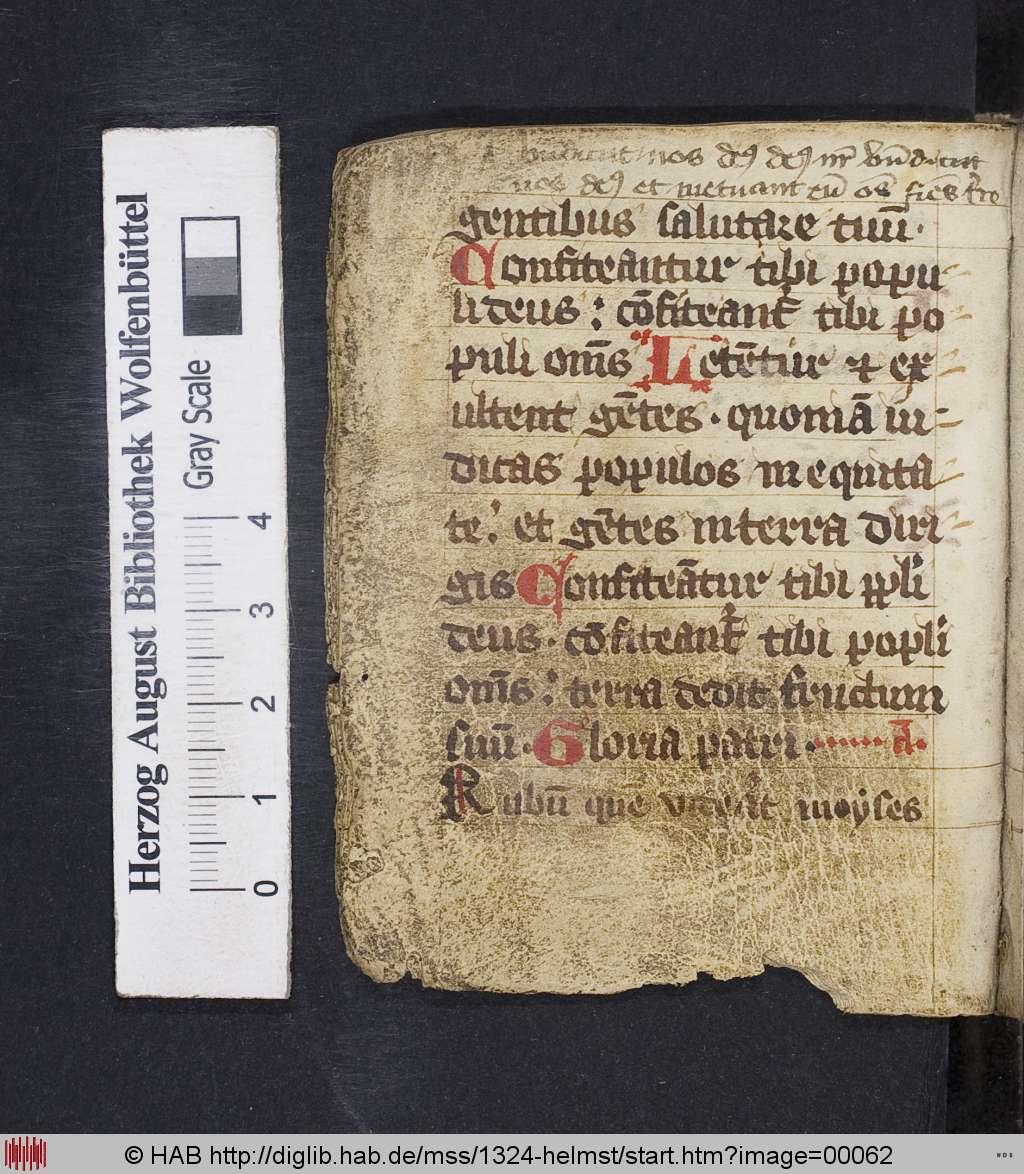 nos deꝰ deꝰ nr̄ bn̄dicat
nos deꝰ et metuant eū oēs fiēs tr̄e
gentibus salutare tuū.
Confiteantur tibi popu
li deus : cōfiteant᷑ tibi po
puli om̄s Letēt᷑ur ⁊ ex
ultent gētes . quoniā iu
dicas populos in equita
te : et gētes in terra diri
gis Confiteātur tibi ppl̓i
deus . cōfiteant᷑ tibi popl̓i
om̄s : terra dedit fructum
suū . Gloria patri . A̅.
Rubū quē moyses
Herzog August Bibliothek Wolfenbüttel
Gray Scale
0 1 2 3 4
© HAB http://diglib.hab.de/mss/1324-helmst/start.htm?image=00062